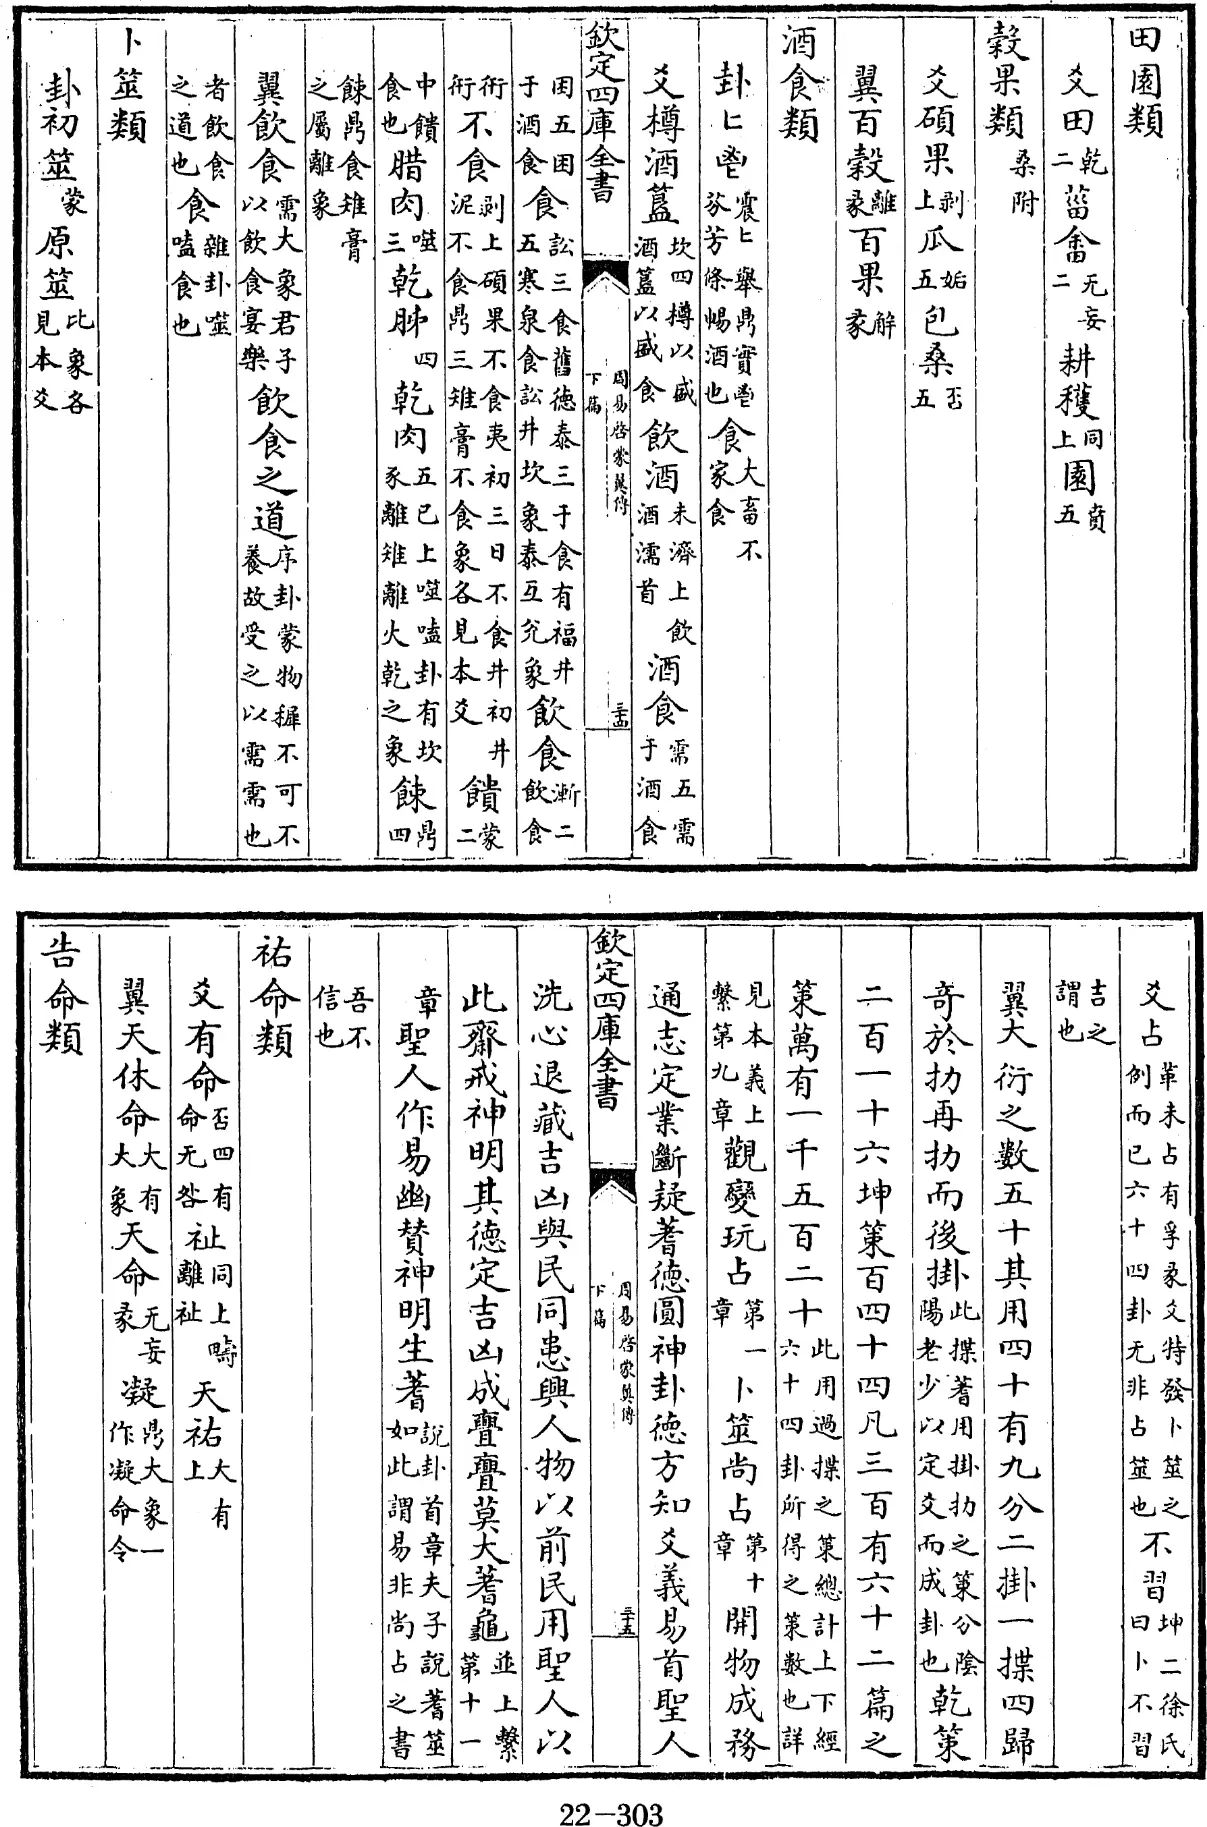 田園類
爻田乾二菑畬无妄二耕穫同上園賁五
穀果類桑附
爻碩果剥上瓜姤五包桑否五
翼百穀離彖百果解彖
酒食類
卦匕鬯震匕舉鼎實鬯芬芳條暢酒也食大畜不家食
爻樽酒簋坎四樽以盛酒簋以盛食飲酒未濟上飲酒濡首酒食需五需于酒食
欽定四庫全書
周易啓蒙翼傳下篇
三十四
困五困于酒食食訟三食舊德泰三于食有福井五寒泉食訟井坎象泰互兊象飲食漸二飲食
衎衎不食剥上碩果不食夷初三日不食井初井泥不食鼎三雉膏不食象各見本爻饋蒙二
中饋食也腊肉噬三乾胏四乾肉五已上噬嗑卦有坎豕離雉離火乾之象餗鼎四
餗鼎食雉膏之屬離象
翼飲食需大象君子以飲食宴樂飲食之道序卦蒙物穉不可不養故受之以需需也
者飲食之道也食雜卦噬嗑食也
卜筮類
卦初筮蒙原筮比象各見本爻
爻占革未占有孚彖爻特發卜筮之例而已六十四卦无非占筮也不習坤二徐氏曰卜不習
吉之謂也
翼大衍之數五十其用四十有九分二掛一揲四歸
奇於扐再扐而後掛此揲蓍用掛扐之策分陰陽老少以定爻而成卦也乾策
二百一十六坤策百四十四凡三百有六十二篇之
策萬有一千五百二十此用過揲之策總計上下經六十四卦所得之策數也詳
見本義上繫第九章觀變玩占第一章卜筮尚占第十章開物成務
通志定業斷疑蓍德圓神卦德方知爻義易首聖人
欽定四庫全書
周易啓蒙翼傳下篇
三十五
洗心退藏吉凶與民同患興人物以前民用聖人以
此齋戒神明其德定吉凶成亹亹莫大蓍龜並上繫第十一
章聖人作易幽贊神明生蓍說卦首章夫子說蓍筮如此謂易非尚占之書
吾不信也
祐命類
爻有命否四有命无咎祉同上疇離祉天祐大有上
翼天休命大有大象天命无妄彖凝鼎大象一作凝命令
告命類
22-303